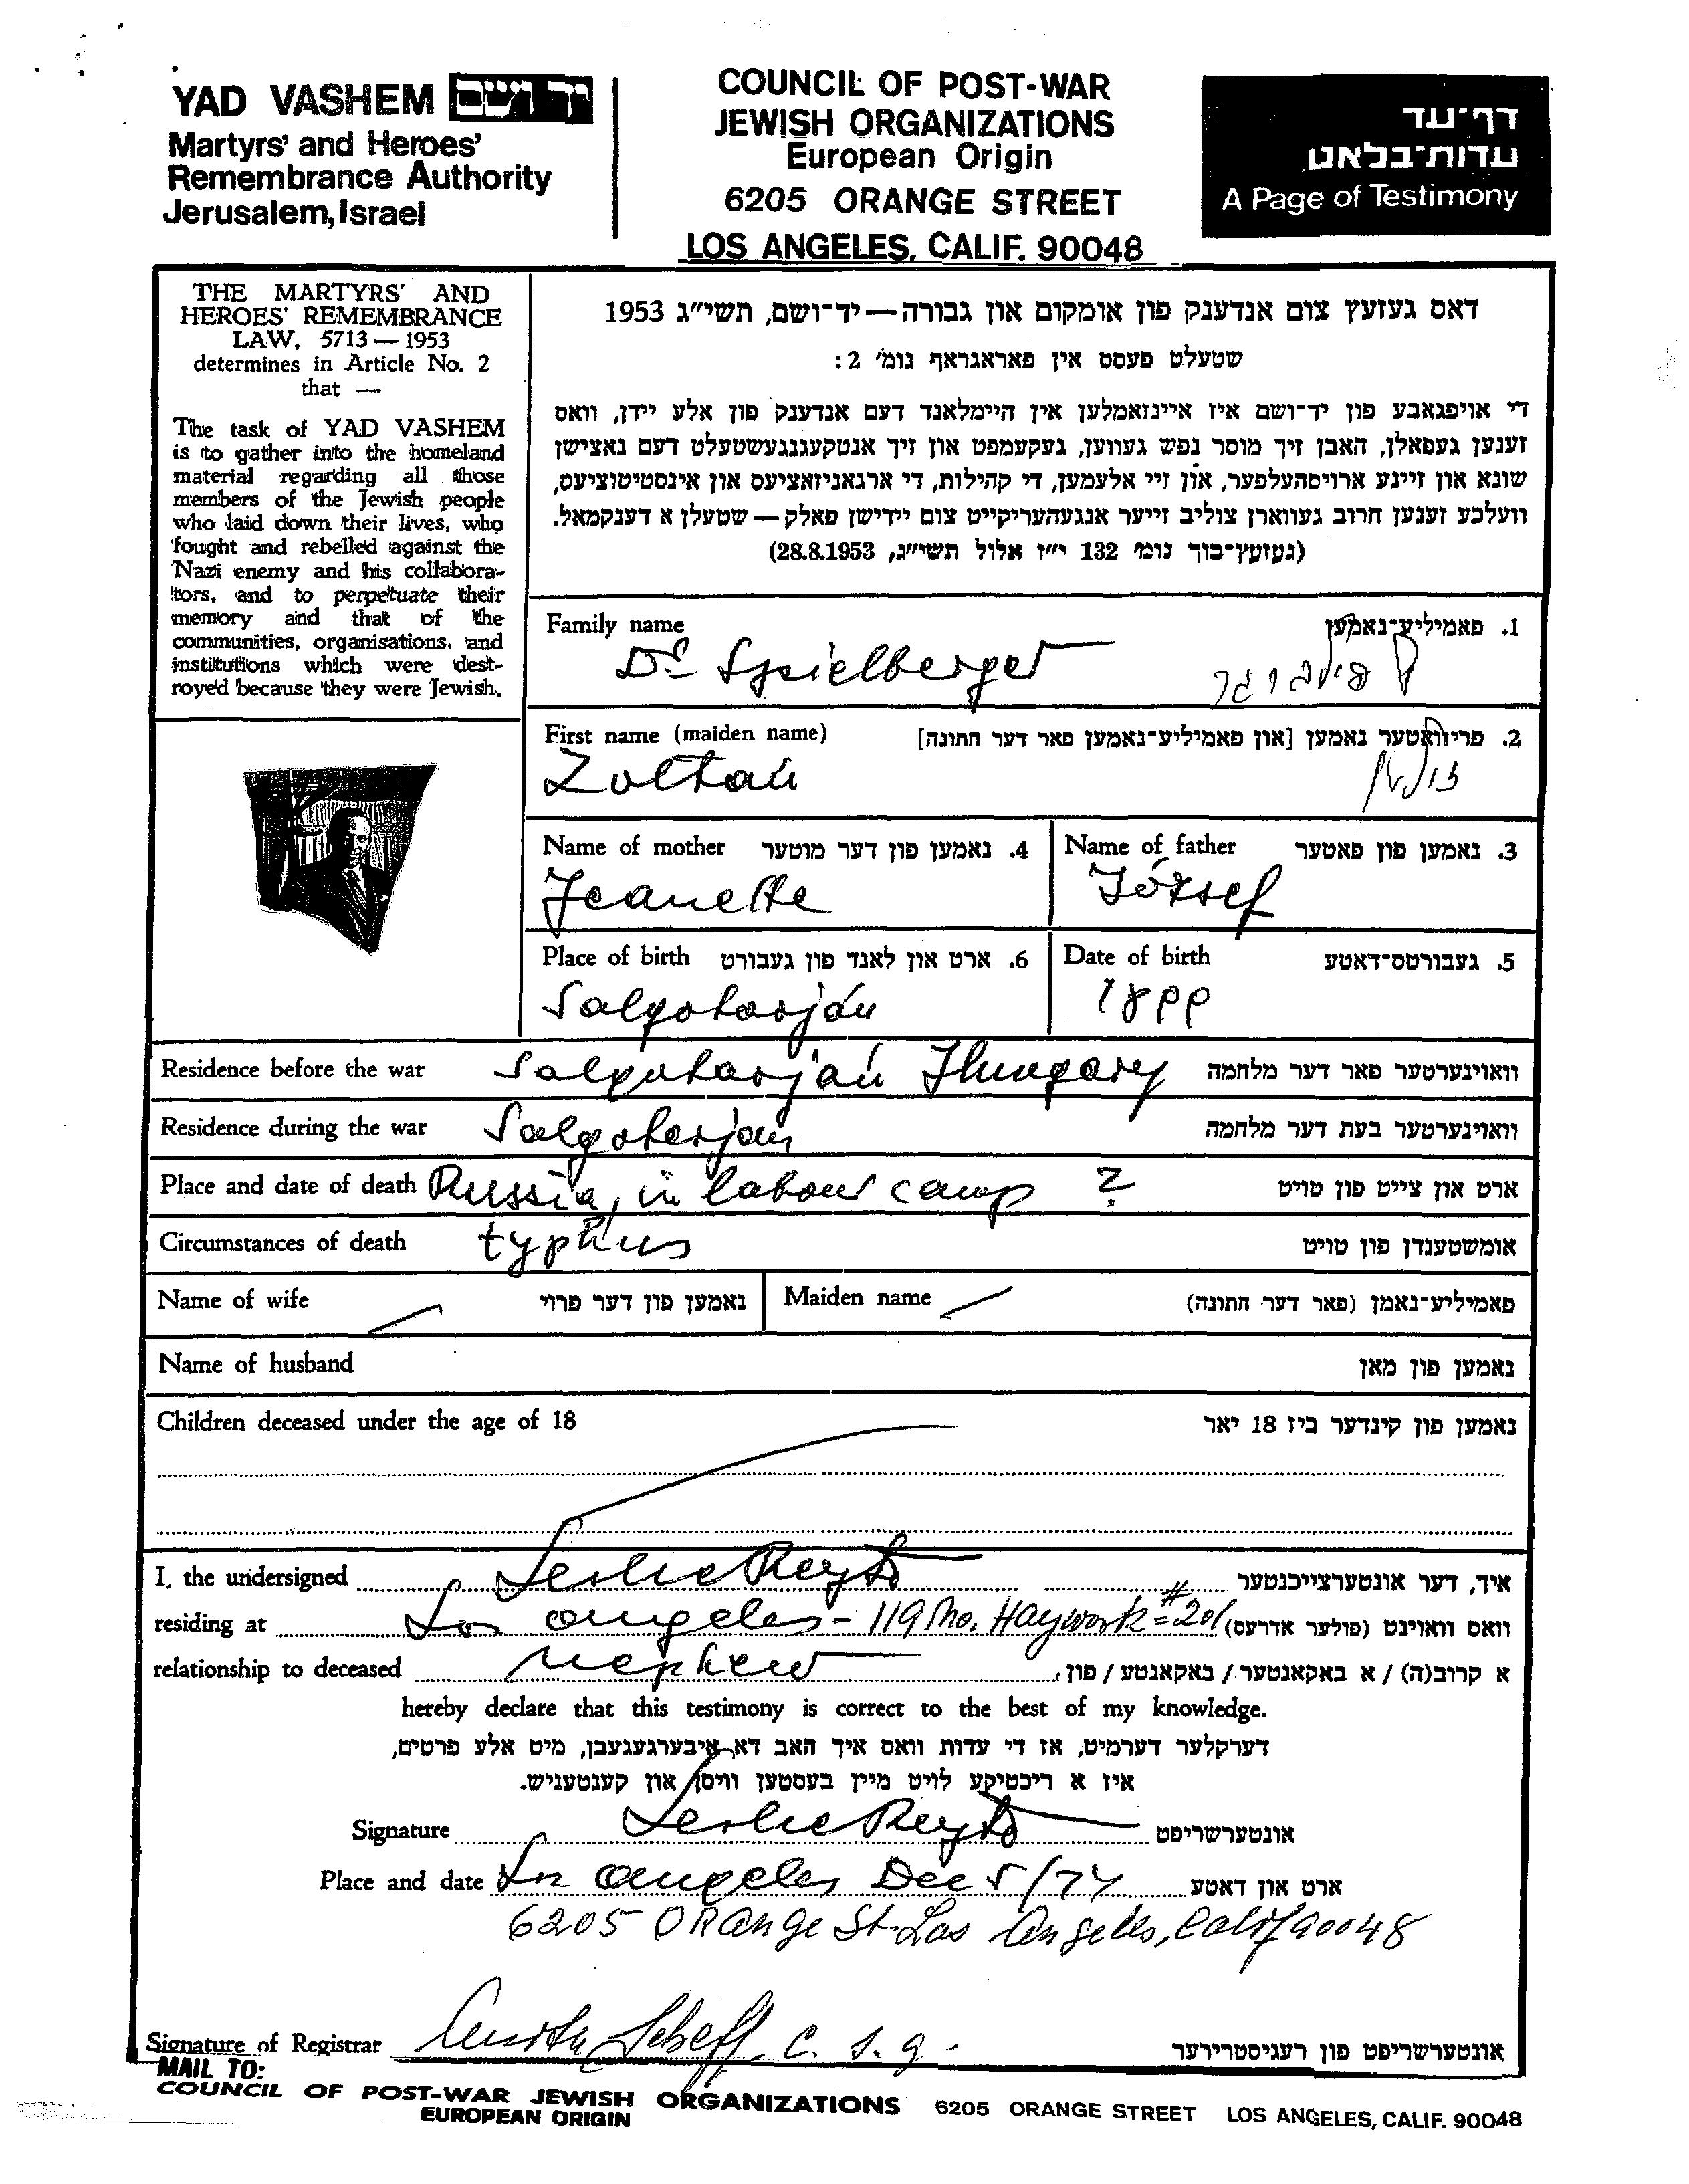 YAD VASHEM יד ושם
Martyrs' and Heroes'
Remembrance Authority
Jerusalem, Israel
COUNCIL OF POST-WAR
JEWISH ORGANIZATIONS
European Origin
6205 ORANGE STREET
LOS ANGELES, CALIF. 90048
דף-עד
עדות-בלאט
A Page of Testimony
THE MARTYRS' AND
HEROES' REMEMBRANCE
LAW, 5713 — 1953
determines in Article No. 2
that —
The task of YAD VASHEM
is to gather into the homeland
material regarding all those
members of the Jewish people
who laid down their lives, who
fought and rebelled against the
Nazi enemy and his collabora-
tors, and to perpetuate their
memory and that of the
communities, organisations, and
institutions which were dest-
royed because they were Jewish.
דאס געזעץ צום אנדענק פון אומקום און גבורה — יד-ושם, תשי"ג 1953
שטעלט פעסט אין פאראגראף נומ' 2:
די אויפגאבע פון יד-ושם איז איינזאמלען אין היימלאנד דעם אנדענק פון אלע יידן, וואס
זענען געפאלן, האבן זיך מוסר נפש געווען, געקעמפט און זיך אנטקעגנגעשטעלט דעם נאצישן
שונא און זיינע ארויסהעלפער, און זיי אלעמען, די קהילות, די ארגאניזאציעס און אינסטיטוציעס,
וועלכע זענען חרוב געווארן צוליב זייער אנגעהעריקייט צום יידישן פאלק — שטעלן א דענקמאל.
(געזעץ-בוך נומ' 132 י"ז אלול תשי"ג, 28.8.1953)
Family name 1. פאמיליע-נאמען
Dr Spielberger שפילברגר
First name (maiden name) 2. פריוואטער נאמען [און פאמיליע-נאמען פאר דער חתונה]
Zoltán זולטן
Name of mother 4. נאמען פון דער מוטער
Jeanette
Name of father 3. נאמען פון פאטער
József
Place of birth 6. ארט און לאנד פון געבורט
Salgotarján
Date of birth 5. געבורטס-דאטע
1899
Residence before the war Salgotarján Hungary וואוינערטער פאר דער מלחמה
Residence during the war Salgotarján וואוינערטער בעת דער מלחמה
Place and date of death Russia, in labour camp ? ארט און צייט פון טויט
Circumstances of death typhus אומשטענדן פון טויט
Name of wife נאמען פון דער פרוי Maiden name פאמיליע-נאמן (פאר דער חתונה)
Name of husband נאמען פון מאן
Children deceased under the age of 18 נאמען פון קינדער ביז 18 יאר
I, the undersigned Leslie Reyto איך, דער אונטערצייכנטער
residing at Los Angeles - 119 No. Hayworth #201 וואס וואוינט (פולער אדרעס)
relationship to deceased nephew א קרוב(ה) / א באקאנטער / באקאנטע / פון
hereby declare that this testimony is correct to the best of my knowledge.
דערקלער דערמיט, אז די עדות וואס איך האב דא איבערגעגעבן, מיט אלע פרטים,
איז א ריכטיקע לויט מיין בעסטען וויסן און קענטעניש.
Signature Leslie Reyto אונטערשריפט
Place and date Los Angeles Dec 5/74 ארט און דאטע
6205 Orange St. Los Angeles, Calif 90048
Signature of Registrar Scheff. אונטערשריפט פון רעגיסטרירער
MAIL TO:
COUNCIL OF POST-WAR JEWISH ORGANIZATIONS 6205 ORANGE STREET LOS ANGELES, CALIF. 90048
EUROPEAN ORIGIN